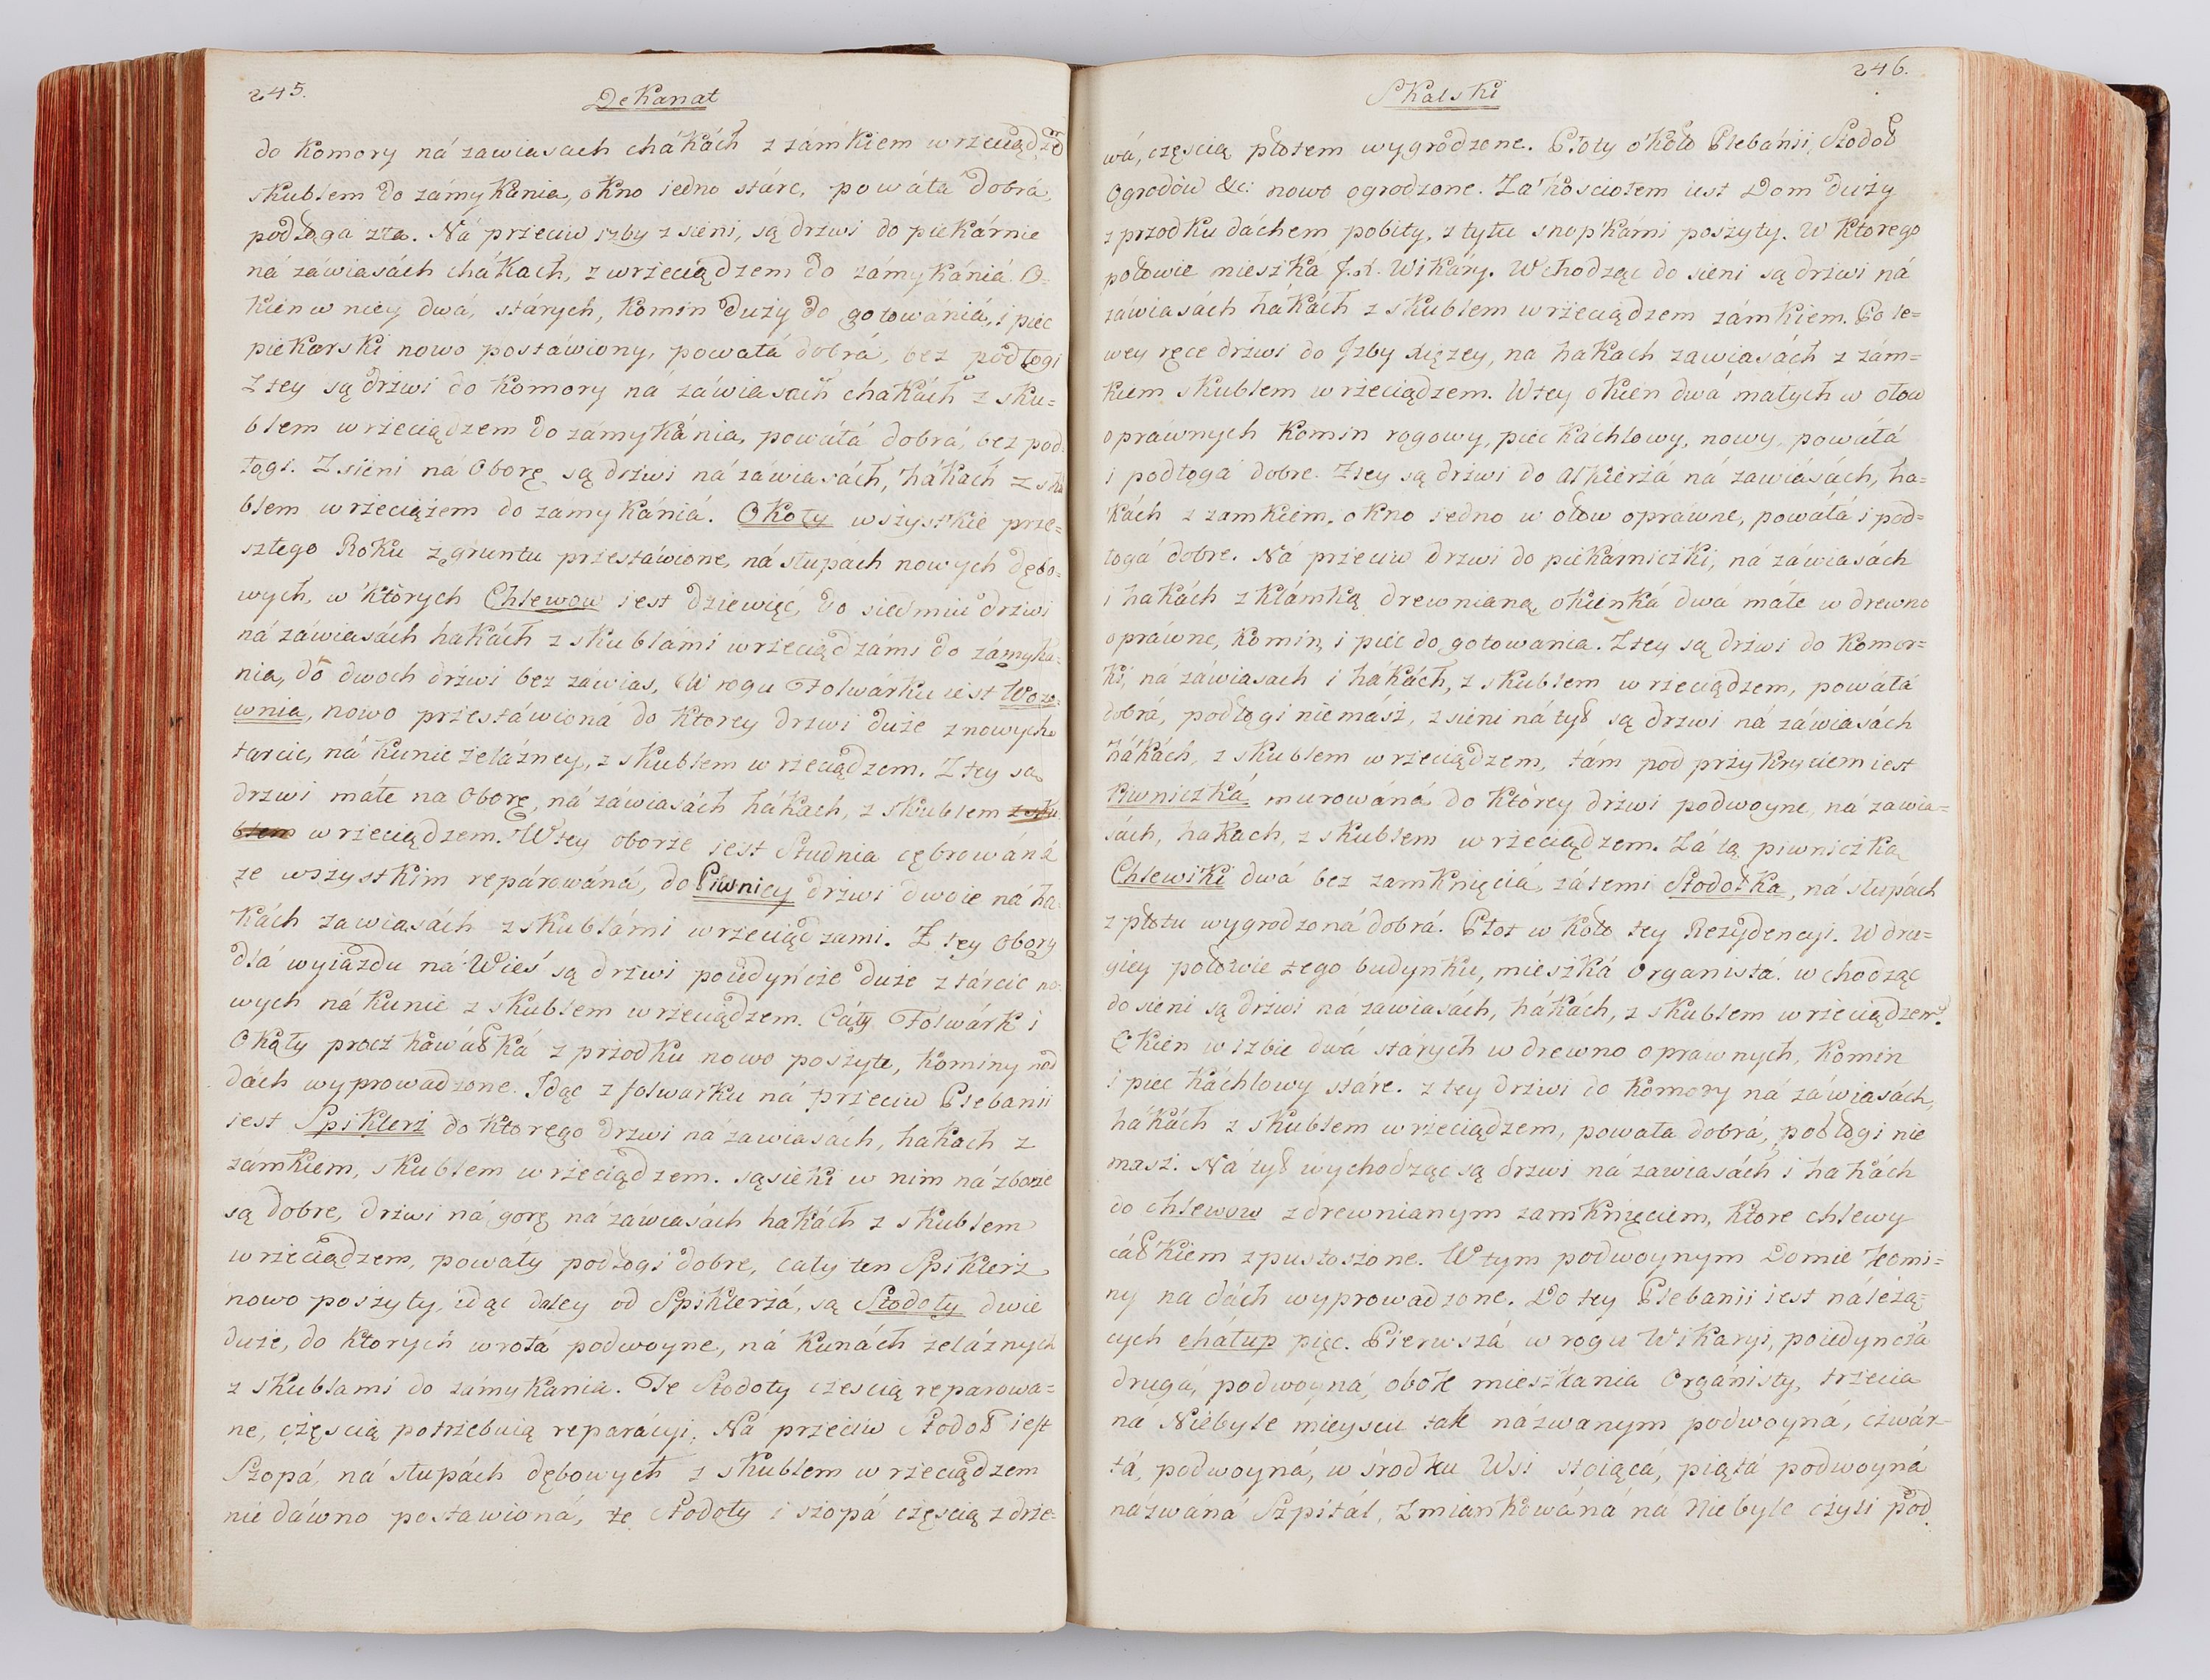 245.
Dekanat
do Komory ná zawiasach chákách z zámkiem wrzeciądzē
skublem do zámykania, okno iedno stáre, powáła dobrá,
podłoga zła. Ná przeciw izby z sieni, są drzwi do piekárnie
ná záwiasách chákach, z wrzeciądzem do zámykániá. O-
kien w niey dwá, stárych, Komin duży do gotowániá, i piec
piekarski nowo postáwiony, powałá dobrá, bez podłogi
Z tey są drzwi do Komory ná záwiasach chakách z sku=
blem wrzeciądzem do zámykánia, powáłá dobrá, bez pod
łogi. Z sieni ná Oborę są drzwi ná záwiasách, hákách z sku
blem wrzeciążem do zamykániá. Okoły wszystkie prze=
szłego Roku z gruntu przestáwione, ná słupách nowych dębo=
wych, w których Chlewow iest dziewięć, do siedmiu drzwi
ná záwiasách hakách z skublámi wrzeciądzámi do zámyka=
nia, do dwoch drzwi bez záwias, W rogu Folwárku iest Wozo=
wnia, nowo przestáwioná do Ktorey drzwi duże z nowych
tarcic, ná kunie żelázney, z skublem wrzeciądzem. Z tey są
drzwi máłe na Oborę, ná záwiasách hákach, z skublem z sku
blem wrzeciądzem. W tey oborze iest Studnia cębrowáná
ze wszystkim repárowáná, do Piwnicy drzwi dwoie ná ha=
kách zawiasách z skublámi wrzeciądzami. Z tey Obory
dlá wyiazdu ná Wieś są drzwi poiedyńcze duże z tárcic no=
wych ná kunie z skublem wrzeciądzem. Cáły Folwárk i
Okoły procz káwałká z przodku nowo poszyte, kominy nad
dách wyprowadzone. Idąc z folwarku ná przeciw Plebanii
iest Spiklerz do ktorego drzwi na zawiasách, hakach z
zámkiem, skublem wrzeciądzem. sąsieki w nim ná zboże
są dobre, drzwi ná gorę ná zawiasách hakách z skublem
wrzeciądzem, powáły podłogi dobre, cały ten Spiklerz
nowo poszyty, idąc daley od Spiklerżá, są Stodoły dwie
duże, do Ktorych wrotá podwoyne, ná kunách żeláznych
z skublami do zámykania. Te Stodoły częscią reparowa=
ne, częscią potrzebuią reparácyi. Ná przeciw Stodoł iest
Szopá, ná słupách dębowych z skublem wrzeciądzem
nie dáwno postawioná, te Stodoły i szopá częscią z drze=
246.
Skalski
wá, częscią płotem wygrodzone. Płoty około Plebáńii, Stodoł
Ogrodów &c: nowo ogrodzone. Zá kosciołem iest Dom duży
z przodku dáchem pobity, z tyłu snopkámi poszyty. W Ktorego
połowie mieszká J.X. Wikáry. Wchodząc do sieni są drzwi ná
záwiasách hákách z skublem wrzeciądzem zámkiem. Po le=
wey ręce drzwi do Jzby Xięzey, na hakach zawiasách z zám=
kiem skublem wrzeciądzem. W tey okien dwá małych w ołow
opráwnych Komin rogowy, piec káchlowy, nowy, powałá
i podłogá dobre. Z tey są drzwi do Alkierzá ná zawiásách, ha=
kách z zamkiem, okno iedno w ołow opráwne, powáłá i pod=
łogá dobre. Ná przeciw drzwi do piekárniczki, ná záwiasách
i hakách z klámką drewnianą, okienká dwá máłe w drewno
opráwne, komin, i piec do gotowania. Z tey są drzwi do Komor=
ki, ná záwiasach i hákách, z skublem wrzeciądzem, powáłá
dobrá, podłogi niemász, z sieni ná tył są drzwi ná záwiasách
hákách, z skublem wrzeciądzem, tám pod przykryciem iest
Piwniczká murowáná do Którey drzwi podwoyne, ná zawia=
sách, hakach, z skublem wrzeciądzem. Zá tą piwniczką
Chlewiki dwá bez zamknięciá, zá temi Stodołka, ná słupách
z płotu wygrodzoná dobrá. Płot w koło tey Rezydencyi. W dru=
giey połowie tego budynku, mieszká Organistá. wchodząc
do sieni są drzwi ná zawiasách, hákách, z skublem wrzeciądzem.
Okien w izbie dwá starych w drewno opráwnych, Komin
i piec káchlowy stáre. z tey drzwi do Komory ná záwiasách,
hákách z skublem wrzeciądzem, powała dobrá, podłogi nie
masz. Ná tył wychodząc są drzwi ná zawiasách i hakách
do chlewow z drewnianym zamknięciem, ktore chlewy
cáłkiem zpustoszone. W tym podwoynym Domie komi=
ny na dách wyprowadzone. Do tey Plebanii iest náleżą=
cych chałup pięc. Pierwszá w rogu Wikaryi, poiedyncza
druga, podwoyná, obok mieszkania Organisty, trzecia
ná Niebyle mieyscu tak názwanym podwoyná, czwár=
tá, podwoyná, w środku Wsi stoiącá, piątá podwoyná
nazwáná Szpitál, Zmiankowáná na Niebyle czyli pod